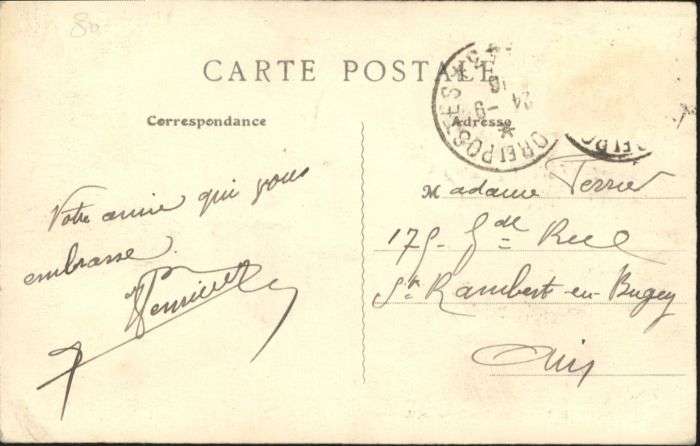 80
CARTE POSTALE
Correspondance
Adresse
POSTES
24 -9
Votre amie qui vous
embrasse.
Henriette
Madame Terrier
175 - Gde Rue
St Rambert-en-Bugey
Ain